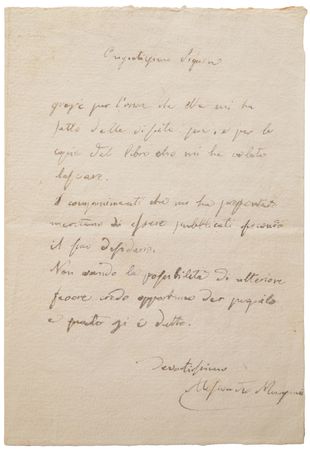 Pregiatissimo Signore
grazie per l'onore che Ella mi ha
fatto della visita, e per le
copie del libro che mi ha voluto
lasciare.
I componimenti che mi ha presentati
meritano di essere pubblicati secondo
il suo desiderio.
Non avendo la possibilità di ulteriore
favore credo opportuno dar
e questo gi è tutto.
Devotissimo
Alessandro